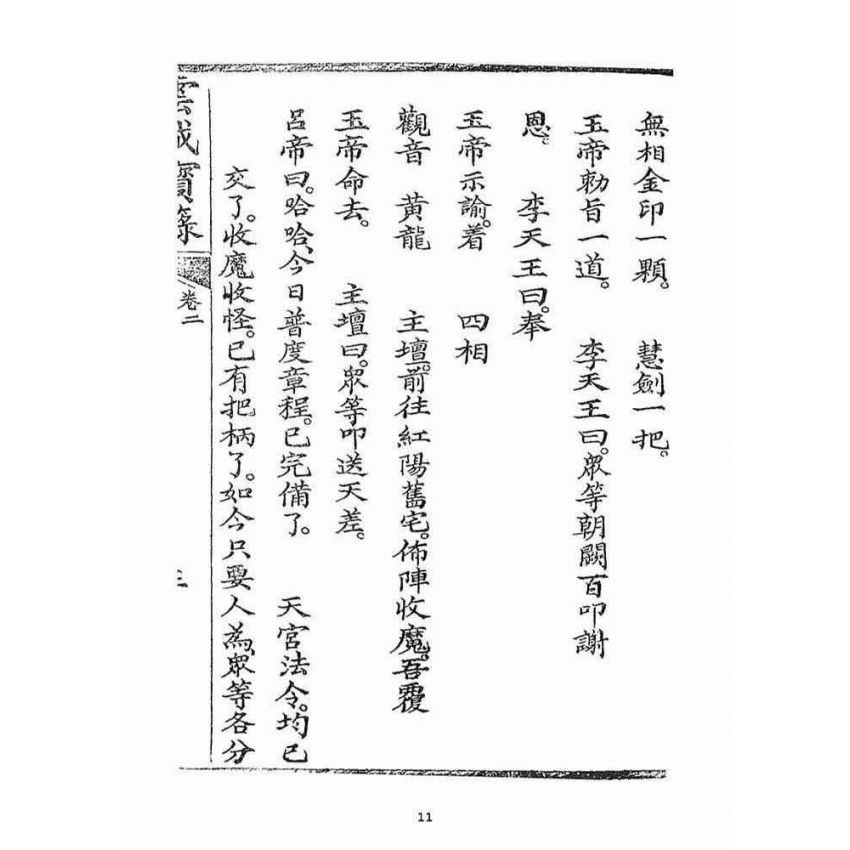 無相金印一顆。　慧劍一把。
玉帝勅旨一道。　李天王曰。眾等朝闕百叩謝
恩。　李天王曰。奉
玉帝示諭。着　四相
觀音　黃龍　主壇。前往紅陽舊宅。佈陣收魔。吾覆
玉帝命去。　主壇曰。眾等叩送天差。
呂帝曰。哈哈、今日普度章程。已完備了。　天宮法令。均已
交了。收魔收怪。已有把柄了。如今只要人為、眾等各分
寶籙
卷二
11